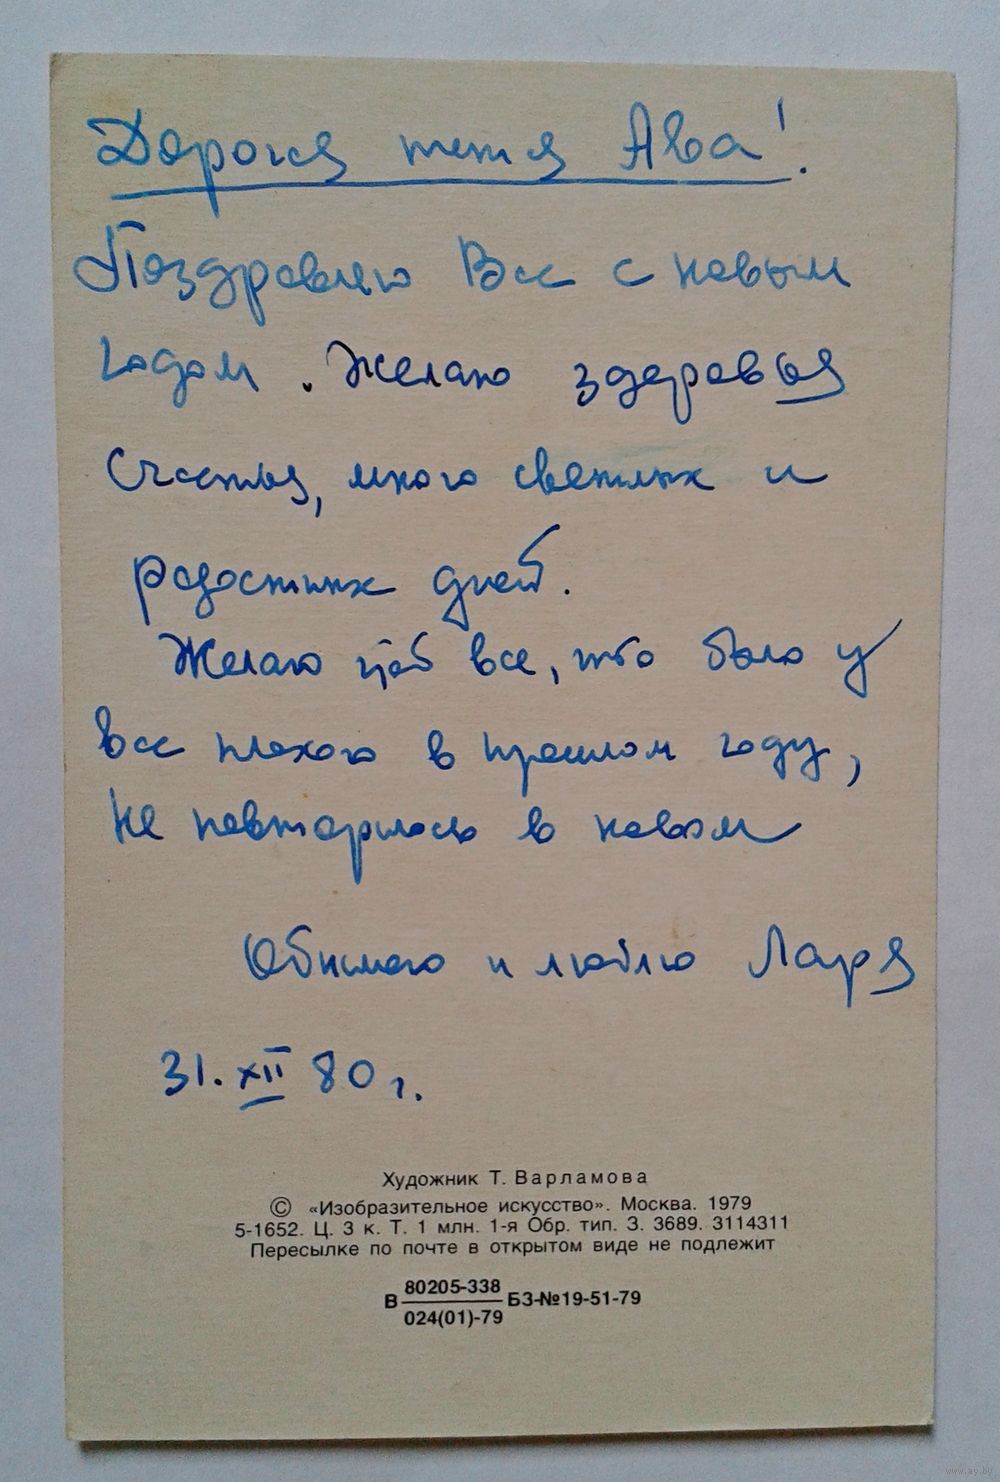 Дорогая тетя Ава!
Поздравляю Вас с новым
годом. Желаю здоровья
Счастья, много светлых и
радостных дней.
Желаю чтоб все, что было у
вас плохого в прошлом году,
не повторилось в новом
Обнимаю и люблю Лара
31. XII 80 г.
Художник Т. Варламова
© «Изобразительное искусство». Москва. 1979
5-1652. Ц. 3 к. Т. 1 млн. 1-я Обр. тип. З. 3689. 3114311
Пересылке по почте в открытом виде не подлежит
80205-338
В БЗ-№19-51-79
024(01)-79
www.ay.by